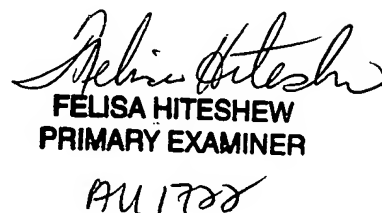 Felisa Hiteshew
FELISA HITESHEW
PRIMARY EXAMINER
AU 1722